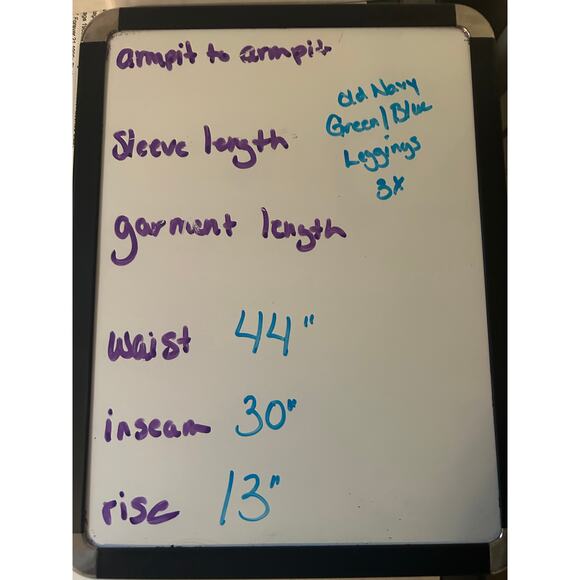 armpit to armpit
Old Navy
Green/Blue
Leggings
3X
Sleeve length
garment length
waist 44"
inseam 30"
rise 13"